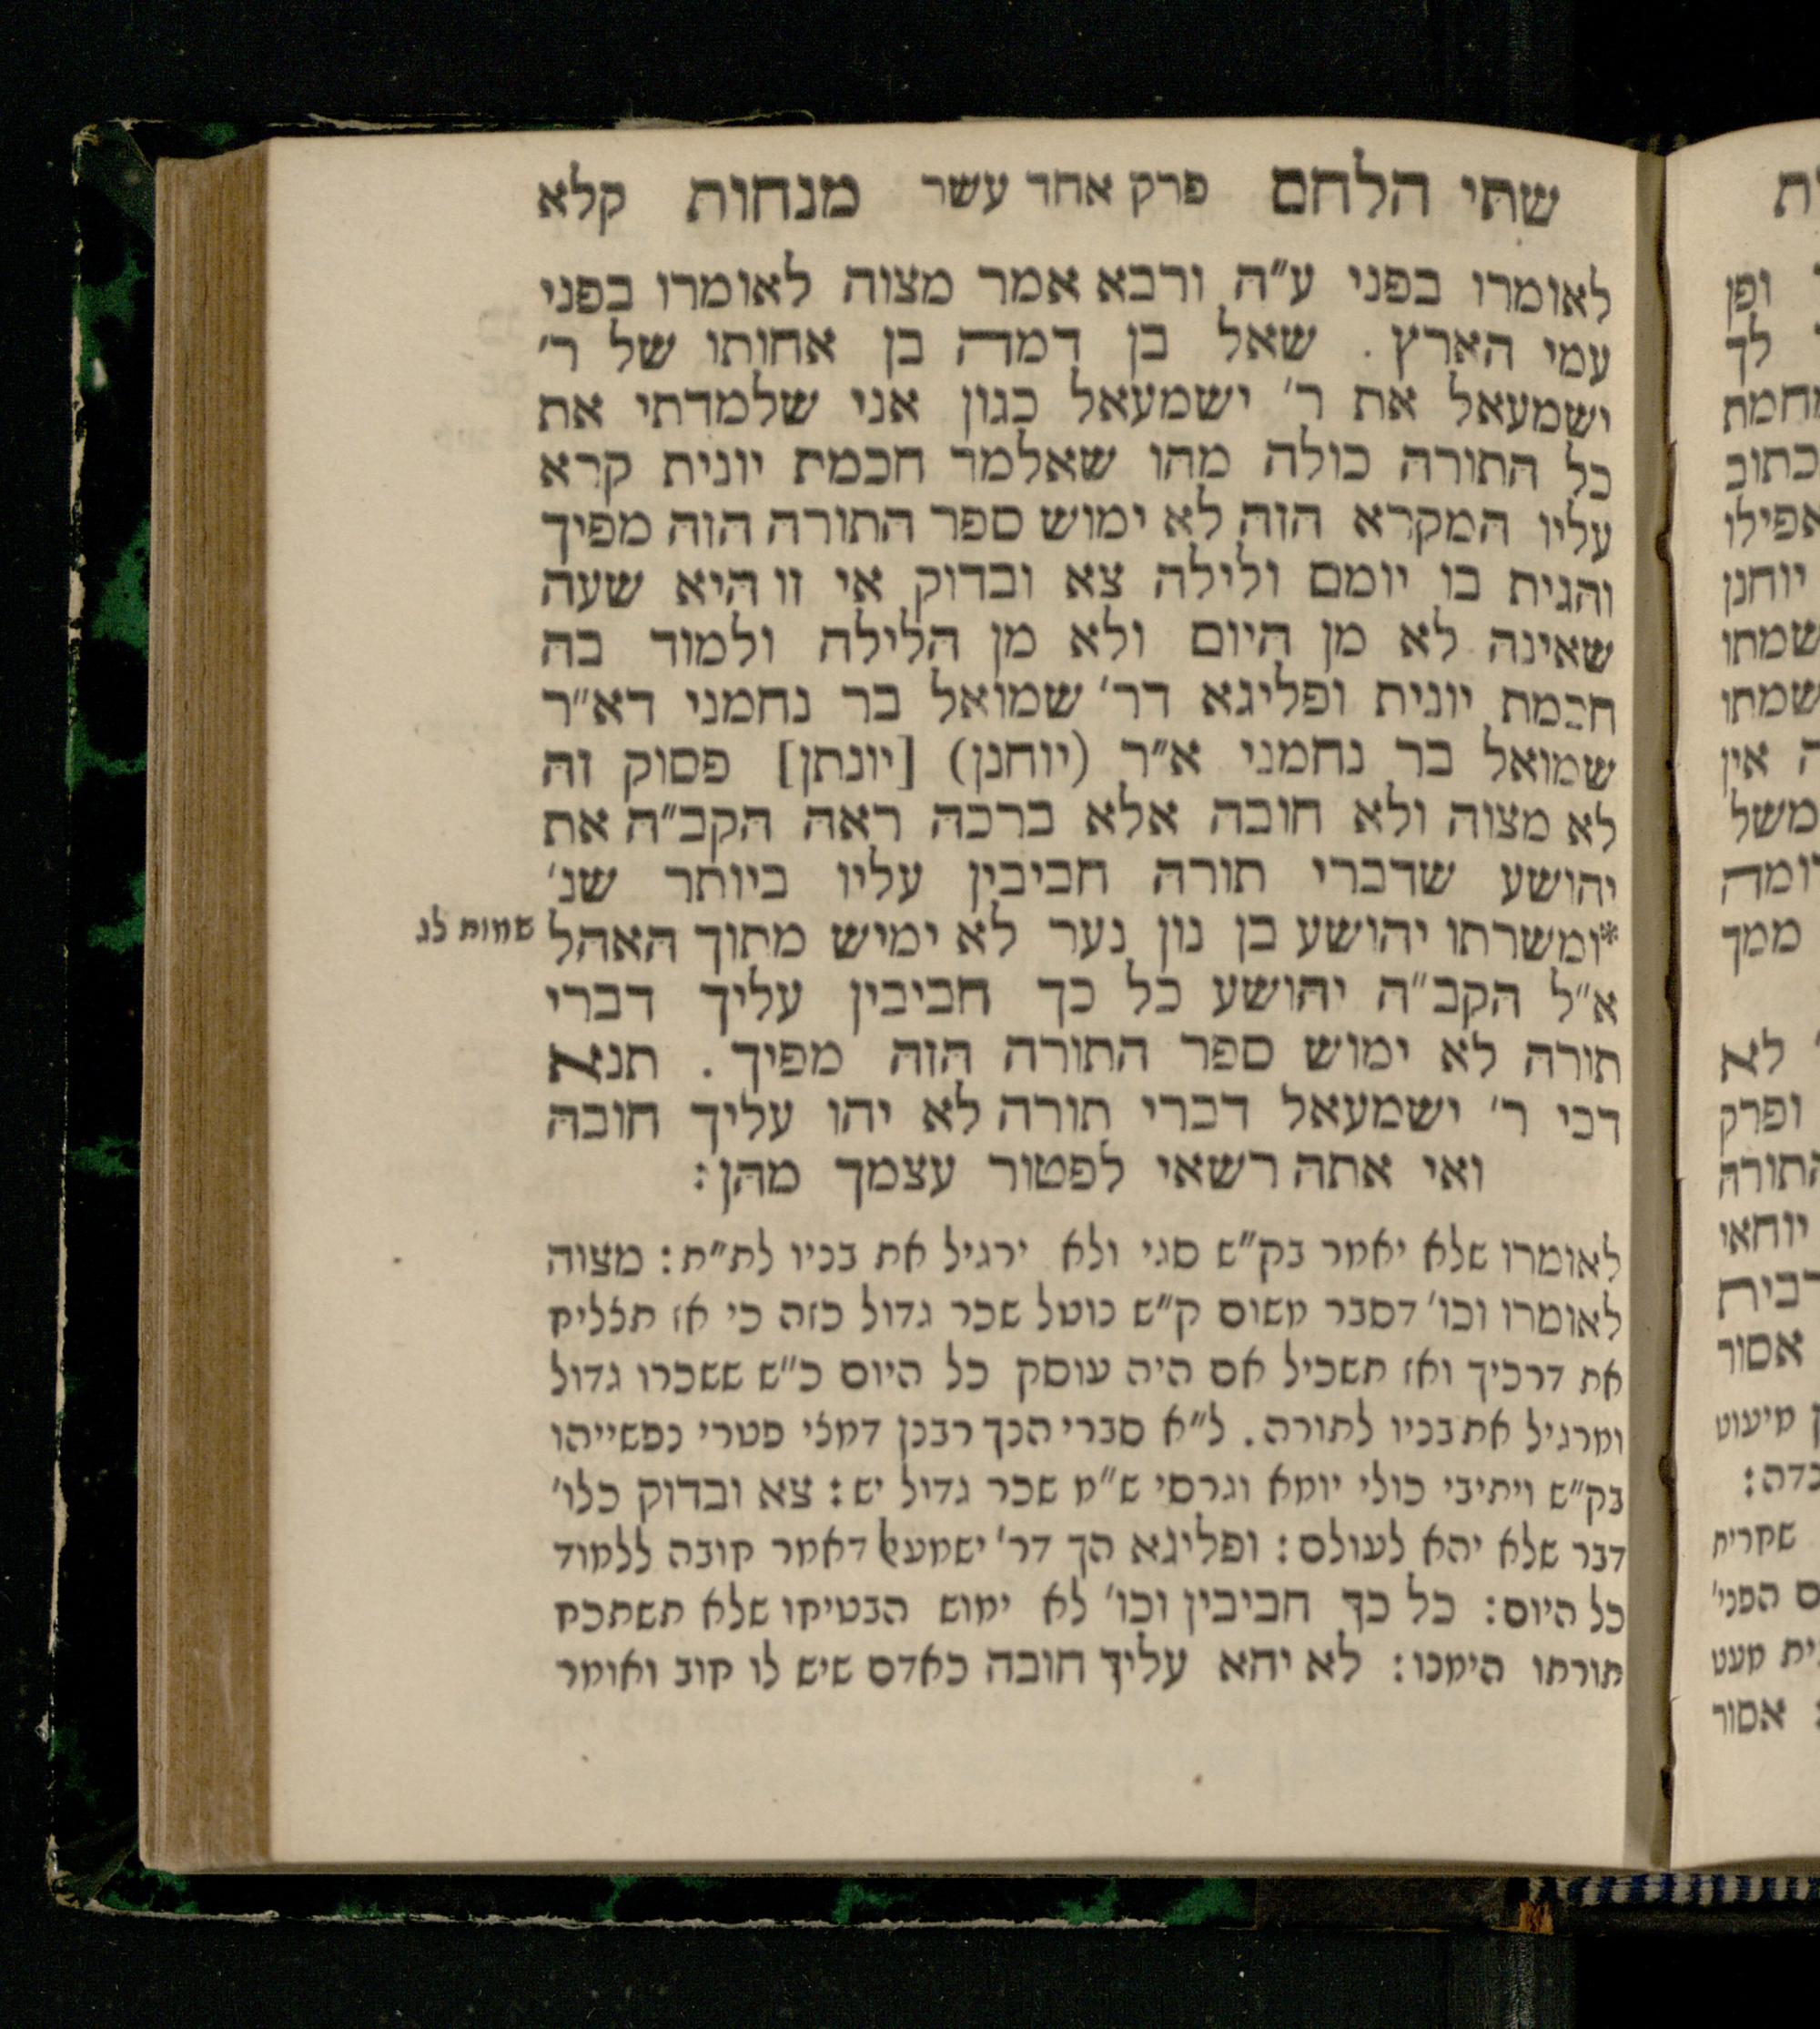 שתי הלחם פרק אחד עשר מנחות קלא
לאומרו בפני ע״ה ורבא אמר מצוה לאומרו בפני
עמי הארץ. שאל בן דמה בן אחותו של ר׳
ישמעאל את ר׳ ישמעאל כגון אני שלמדתי את
כל התורה כולה מהו שאלמד חכמת יונית קרא
עליו המקרא הזה לא ימוש ספר התורה הזה מפיך
והגית בו יומם ולילה צא ובדוק אי זו היא שעה
שאינה לא מן היום ולא מן הלילה ולמוד בה
חכמת יונית ופליגא דר׳ שמואל בר נחמני דא״ר
שמואל בר נחמני א״ר (יוחנן) [יונתן] פסוק זה
לא מצוה ולא חובה אלא ברכה ראה הקב״ה את
יהושע שדברי תורה חביבין עליו ביותר שנ׳
*ומשרתו יהושע בן נון נער לא ימיש מתוך האהל
שמות לג
א״ל הקב״ה יהושע כל כך חביבין עליך דברי
תורה לא ימוש ספר התורה הזה מפיך. תנא
דבי ר׳ ישמעאל דברי תורה לא יהו עליך חובה
ואי אתה רשאי לפטור עצמך מהן:
לאומרו שלא יאמר בק״ש סגי ולא ירגיל את בניו לת״ת: מצוה
לאומרו וכו׳ דסבר משום ק״ש נוטל שכר גדול כזה כי אז תצליח
את דרכיך ואז תשכיל אם היה עוסק כל היום כ״ש ששכרו גדול
ומרגיל את בניו לתורה. ל״א סברי הנך רבנן דמצי פטרי נפשייהו
בק״ש ויתיבי כולי יומא וגרסי ש״מ שכר גדול יש: צא ובדוק כלו׳
דבר שלא יהא לעולם: ופליגא הך דר׳ ישמעאל דאמר חובה ללמוד
כל היום: כל כך חביבין וכו׳ לא ימוש הבטיחו שלא תשתכח
תורתו הימנו: לא יהא עליך חובה כאדם שיש לו חוב ואומר